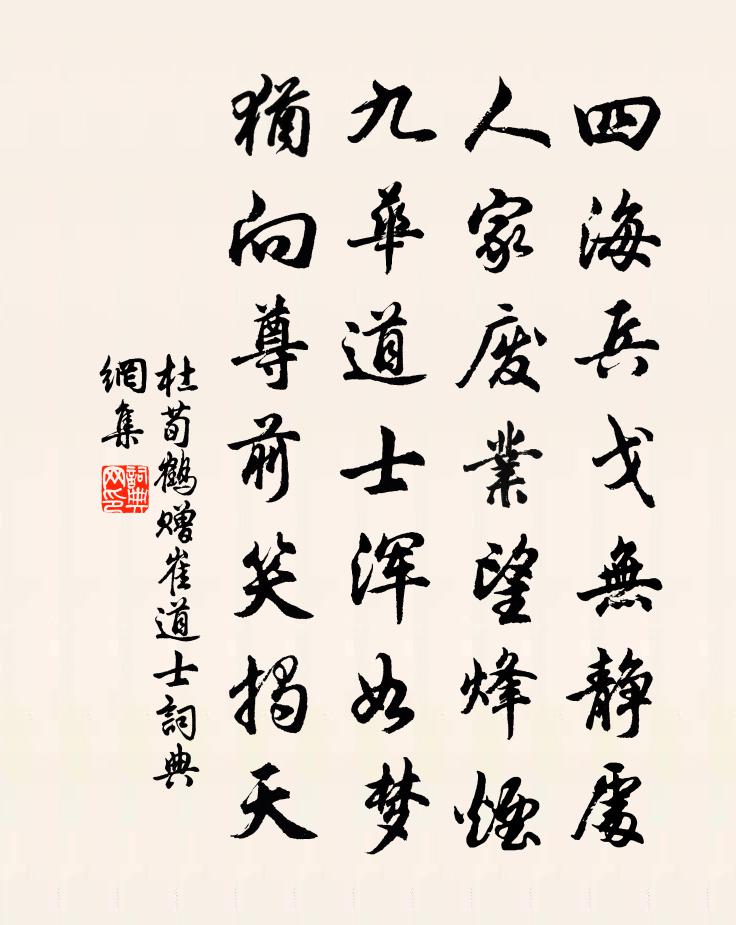 四海兵戈無静處
人家废業望烽煙
九華道士浑如梦
猶向尊前笑揭天
杜荀鶴赠崔道士詞典
網集
詞典网印